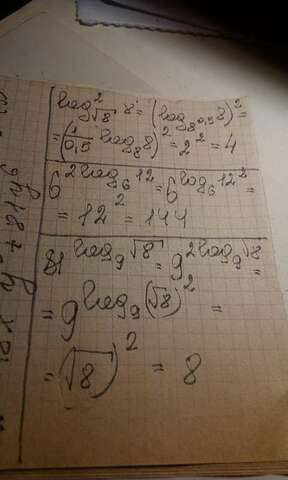 log²_√8 8 = (log_8^0,5 8)² =
= (1/0,5 log_8 8)² = 2² = 4
6^(2log_6 12) = 6^(log_6 12²) =
= 12² = 144
81^(log_9 √8) = 9^(2log_9 √8) =
= 9^(log_9 (√8)²) =
= (√8)² = 8